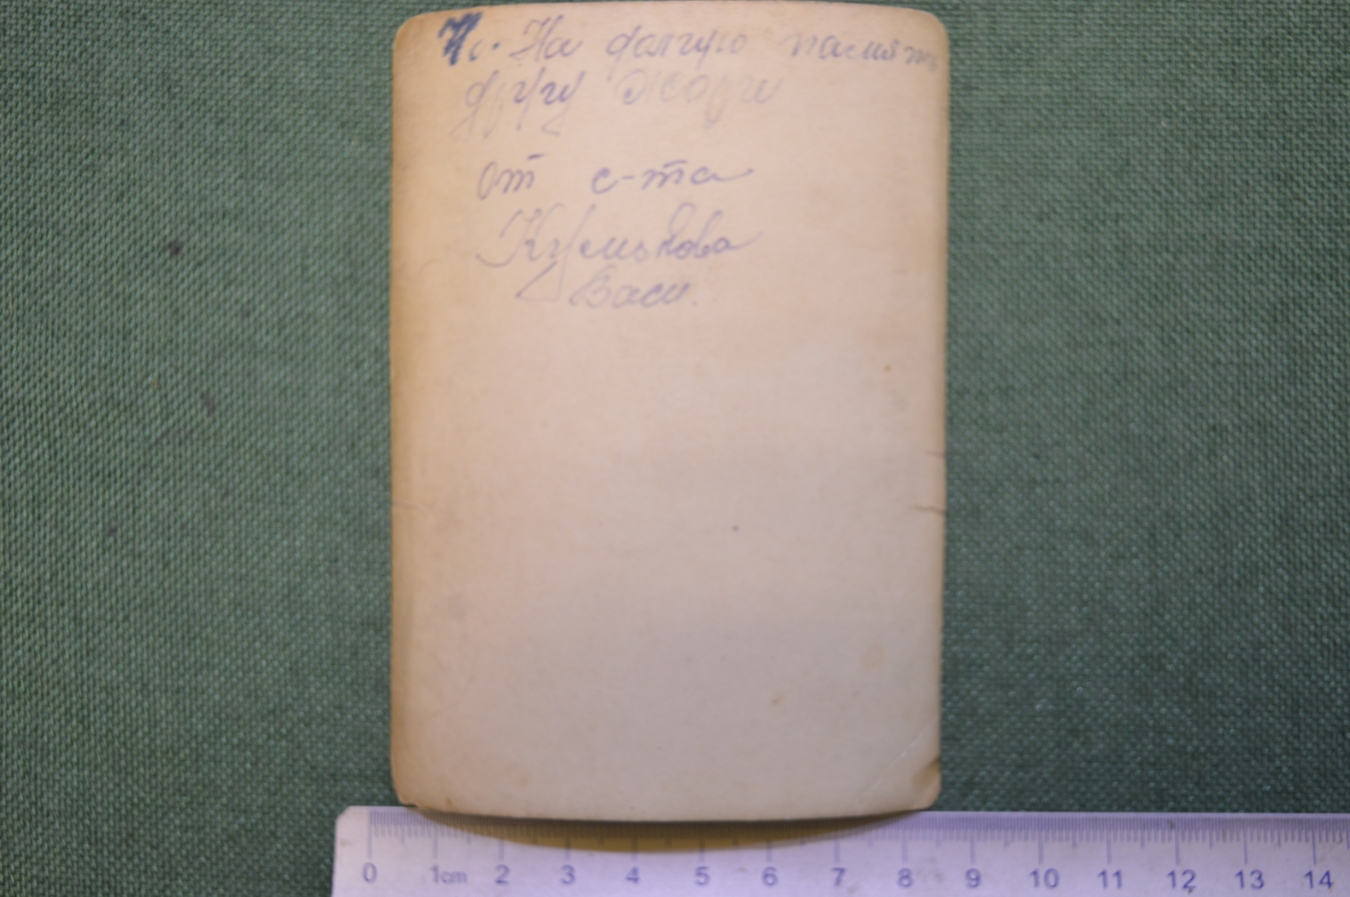 На долгую память
другу Жоры
от с-та
Кузьмякова
Васи.
0 1cm 2 3 4 5 6 7 8 9 10 11 12 13 14